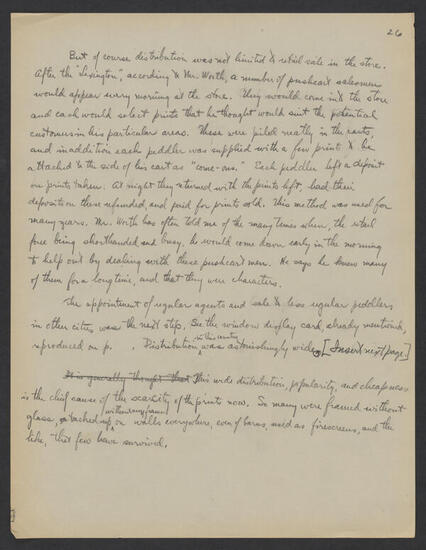 26
But of course distribution was not limited to retail sale in the store.
After the "Lexington", according to Mr. Worth, a number of pushcart salesmen
would appear every morning at the store. They would come into the store
and each would select prints that he thought would suit the potential
customers in his particular areas. These were piled neatly in the carts,
and in addition each peddler was supplied with a few prints to be
attached to the side of his cart as "come-ons." Each peddler left a deposit
on prints taken. At night they returned with the prints left, had their
deposit on these refunded, and paid for prints sold. This method was used for
many years. Mr. Worth has often told me of the many times when, the retail
force being shorthanded and busy, he would come down early in the morning
to help out by dealing with these pushcart men. He says he knew many
of them for a long time, and that they were characters.
The appointment of regular agents and sale to less regular peddlers
in other cities was the next step. See the window display card, already mentioned,
reproduced on p. . Distribution in this country was astonishingly wide. [Insert next page]
It is generally thought that This wide distribution, popularity, and cheapness
is the chief cause of the scarcity of the prints now. So many were framed without
glass, or tacked up without any frame on walls everywhere, even of barns, used as firescreens, and the
like, that few have survived.